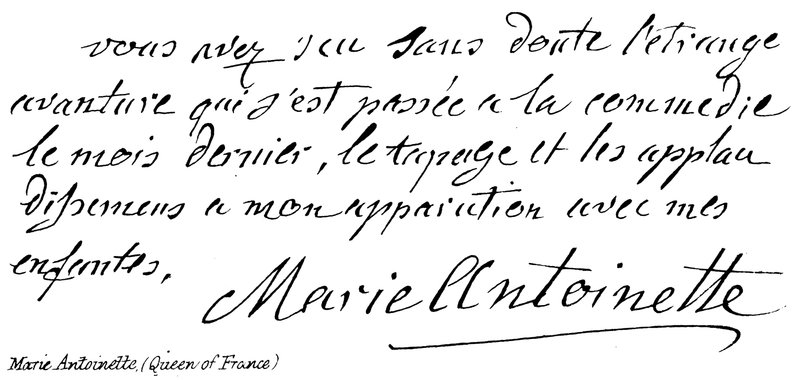 vous avez sçu sans doute l'etrange
avanture qui s'est passée a la commedie
le mois dernier, le tapage et les applau
dissemens a mon apparution avec mes
enfantes,
Marie Antoinette
Marie Antoinette, (Queen of France)